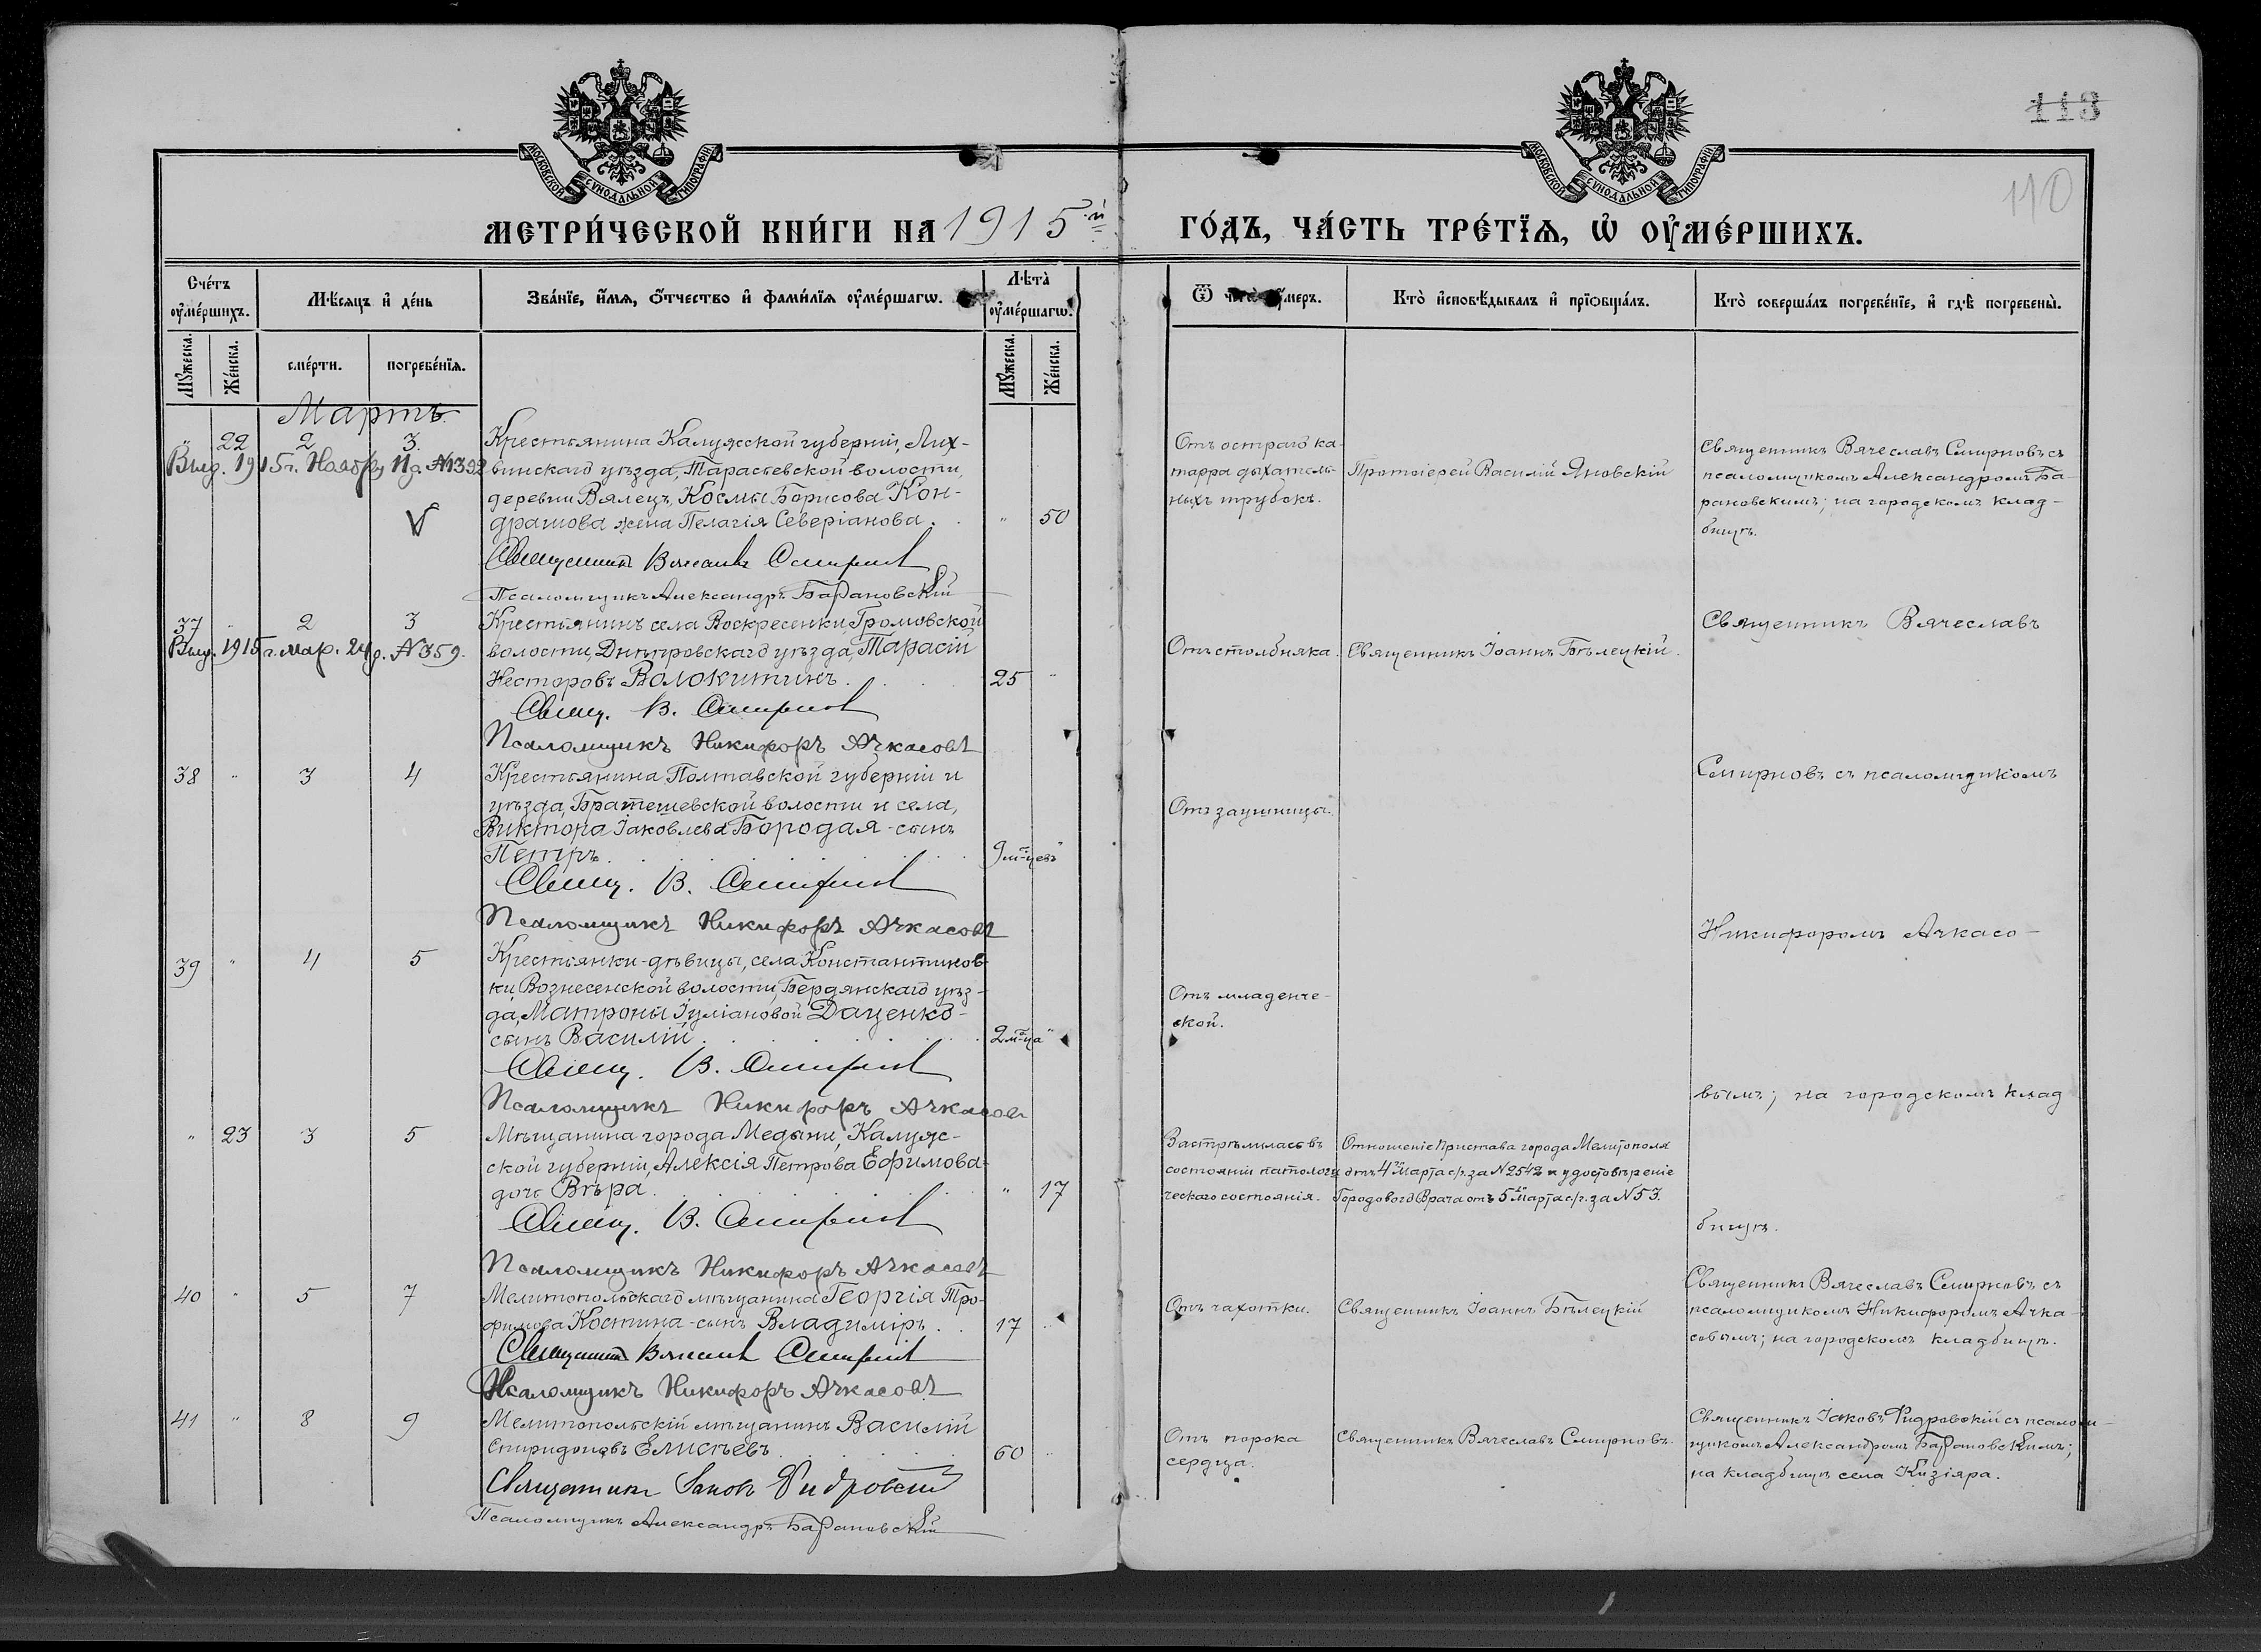 113
110
МОСКОВСКОЙ СѴНОДАЛЬНОЙ ТИПОГРАФІИ
МОСКОВСКОЙ СѴНОДАЛЬНОЙ ТИПОГРАФІИ
МЕТРИ́ЧЕСКОЙ КНИ́ГИ НА 1915-й ГО́ДЪ, ЧА́СТЬ ТРЕ́ТЇѦ, Ѡ҆ ОУ҆МЕ́РШИХЪ.
Сче́тъ оу҆ме́ршихъ.
Мѣ́сѧцъ и҆ де́нь
Зва́нїе, и҆́мѧ, ѻ҆́тчество и҆ фами́лїѧ оу҆ме́ршагѡ.
Лѣта̀ оу҆ме́ршагѡ.
Ѿ чегѡ̀ оу҆́меръ.
Кто̀ и҆сповѣ́дывалъ и҆ прїѻбща́лъ.
Кто̀ соверша́лъ погребе́нїе, и҆ гдѣ̀ погребены̀.
Мꙋ́жеска.
Же́нска.
сме́рти.
погребе́нїѧ.
Мꙋ́жеска.
Же́нска.
Мартъ
" 22 2 3.
Выд. 1915 г. Ноября 11 д. №1392
V
Крестьянина Калужской губерніи, Лих-
винскаго уѣзда, Тарасьевской волости,
деревни Вялецъ, Космы Борисова Кон-
драшова жена Пелагія Северіанова.
" 50
Священникъ Вячеславъ Смирновъ
Псаломщикъ Александръ Барановскій
Отъ остраго ка-
тарра дыхатель-
ныхъ трубокъ.
Протоіерей Василій Яновскій
Священникъ Вячеславъ Смирновъ съ
псаломщикомъ Александромъ Ба-
рановскимъ; на городскомъ клад-
бищѣ.
37 " 2 3
Выд. 1915 г. мар. 24 д. №359.
Крестьянинъ села Воскресенки, Громовской
волости, Днѣпровскаго уѣзда, Тарасій
Несторовъ Волокитинъ.
25 "
Свящ. В. Смирновъ
Псаломщикъ Никифоръ Ачкасовъ
Отъ столбняка.
Священникъ Іоаннъ Бѣлецкій.
Священникъ Вячеславъ
38 " 3 4
Крестьянина Полтавской губерніи и
уѣзда, Братешевской волости и села,
Виктора Іаковлева Бородая - сынъ
Петръ.
9 м-цевъ "
Свящ. В. Смирновъ
Псаломщикъ Никифоръ Ачкасовъ
Отъ заушницы.
Смирновъ съ псаломщикомъ
39 " 4 5
Крестьянки-дѣвицы, села Константинов-
ки, Вознесенской волости, Бердянскаго уѣз-
да, Матроны Іуліановой Даценко -
сынъ Василій
2 м-ца "
Свящ. В. Смирновъ
Псаломщикъ Никифоръ Ачкасовъ
Отъ младенче-
ской.
Никифоромъ Ачкасо-
" 23 3 5
Мѣщанина города Медыни, Калуж-
ской губерніи, Алексія Петрова Ефимова -
дочь Вѣра.
" 17
Свящ. В. Смирновъ
Псаломщикъ Никифоръ Ачкасовъ
Застрѣлилась въ
состояніи патологи-
ческаго состоянія.
Отношеніе Пристава города Мелитополя
отъ 4го Марта с/г. за №2542 и удостовѣреніе
Городового Врача отъ 5го Марта с/г. за №53.
вымъ; на городскомъ клад
бищѣ.
40 " 5 7
Мелитопольскаго мѣщанина Георгія Тро-
фимова Костина - сынъ Владиміръ.
17 "
Священникъ Вячеславъ Смирновъ
Псаломщикъ Никифоръ Ачкасовъ
Отъ чахотки.
Священникъ Іоаннъ Бѣлецкій
Священникъ Вячеславъ Смирновъ съ
псаломщикомъ Никифоромъ Ачка-
совымъ; на городскомъ кладбищѣ.
41 " 8 9
Мелитопольскій мѣщанинъ Василій
Спиридоновъ Елисѣевъ.
60 "
Священникъ Іаковъ Фидровскій
Псаломщикъ Александръ Барановскій
Отъ порока
сердца.
Священникъ Вячеславъ Смирновъ.
Священникъ Іаковъ Фидровскій съ псалом-
щикомъ Александромъ Барановскимъ;
на кладбищѣ села Кизіяра.